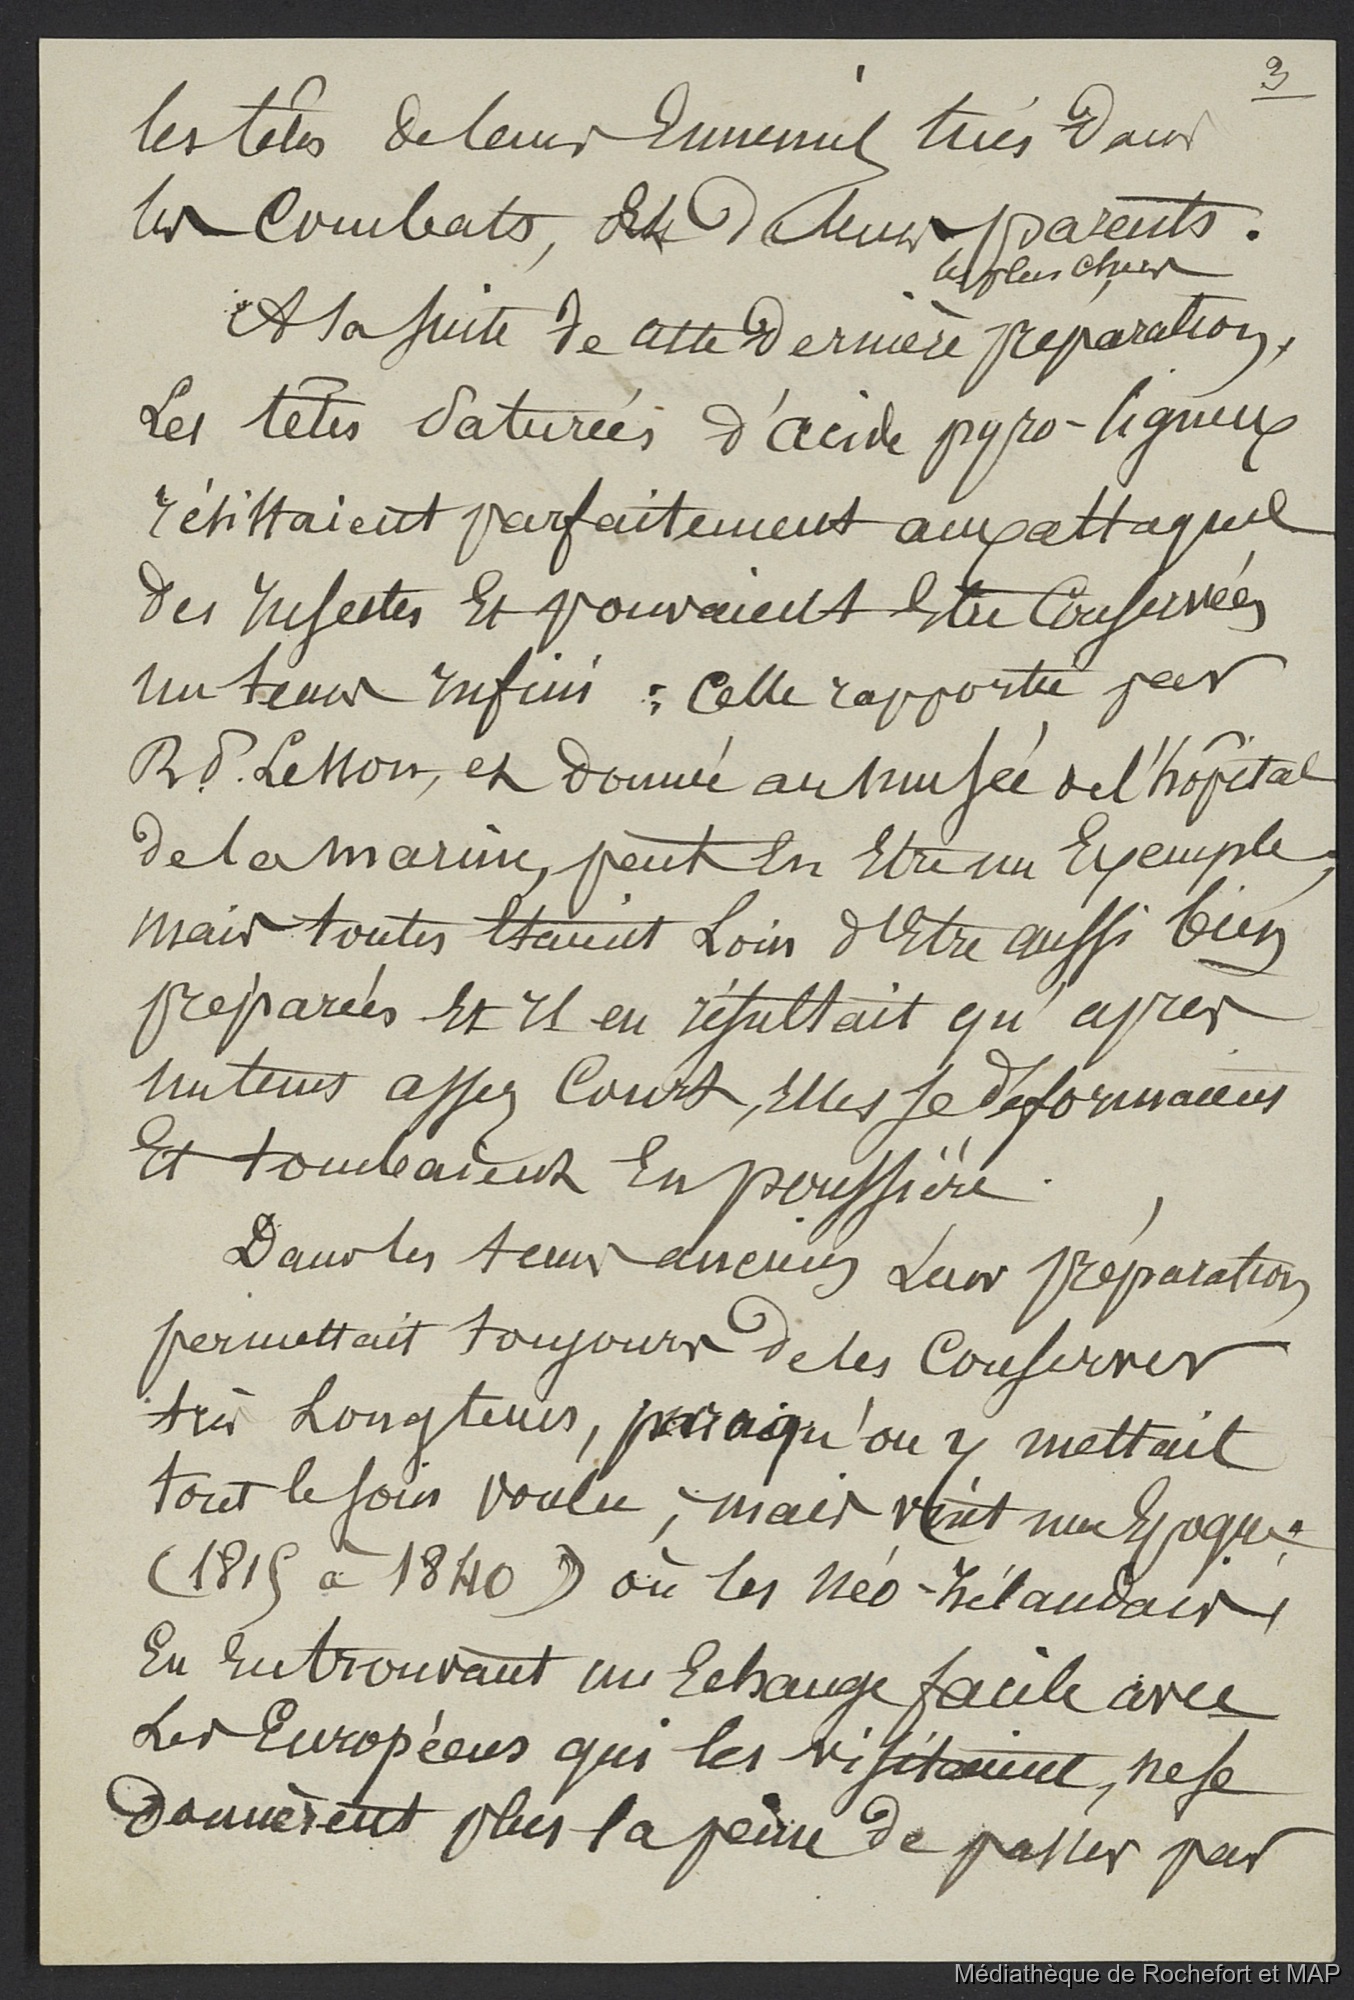 3
les têtes de leurs Ennemis tués dans
les Combats, et de leurs parents.
les plus chers
A la suite de cette dernière préparation,
Les têtes saturées d'acide pyro-ligneux
résistaient parfaitement aux attaques
des Insectes Et pouvaient Etre Conservées
un tems infini : celle rapportée par
R. P. Lesson, et donnée au musée de l'hôpital
de la marine, peut En Etre un Exemple,
mais toutes Etaient Loin d'Etre aussi bien
préparées Et Il en résultait qu'après
un tems assez Court, Elles se déformaient
Et tombaient En poussière.
Dans les tems anciens Leur préparation
permettait toujours de les Conserver
très Longtems, parcequ'on y mettait
tout le soin voulu ; mais vint une Epoque
(1815 à 1840) où les Néo-Zélandais,
En Entrouvant un Echange facile avec
Les Européens qui les visitaient, ne se
donnèrent plus la peine de passer par
Médiathèque de Rochefort et MAP